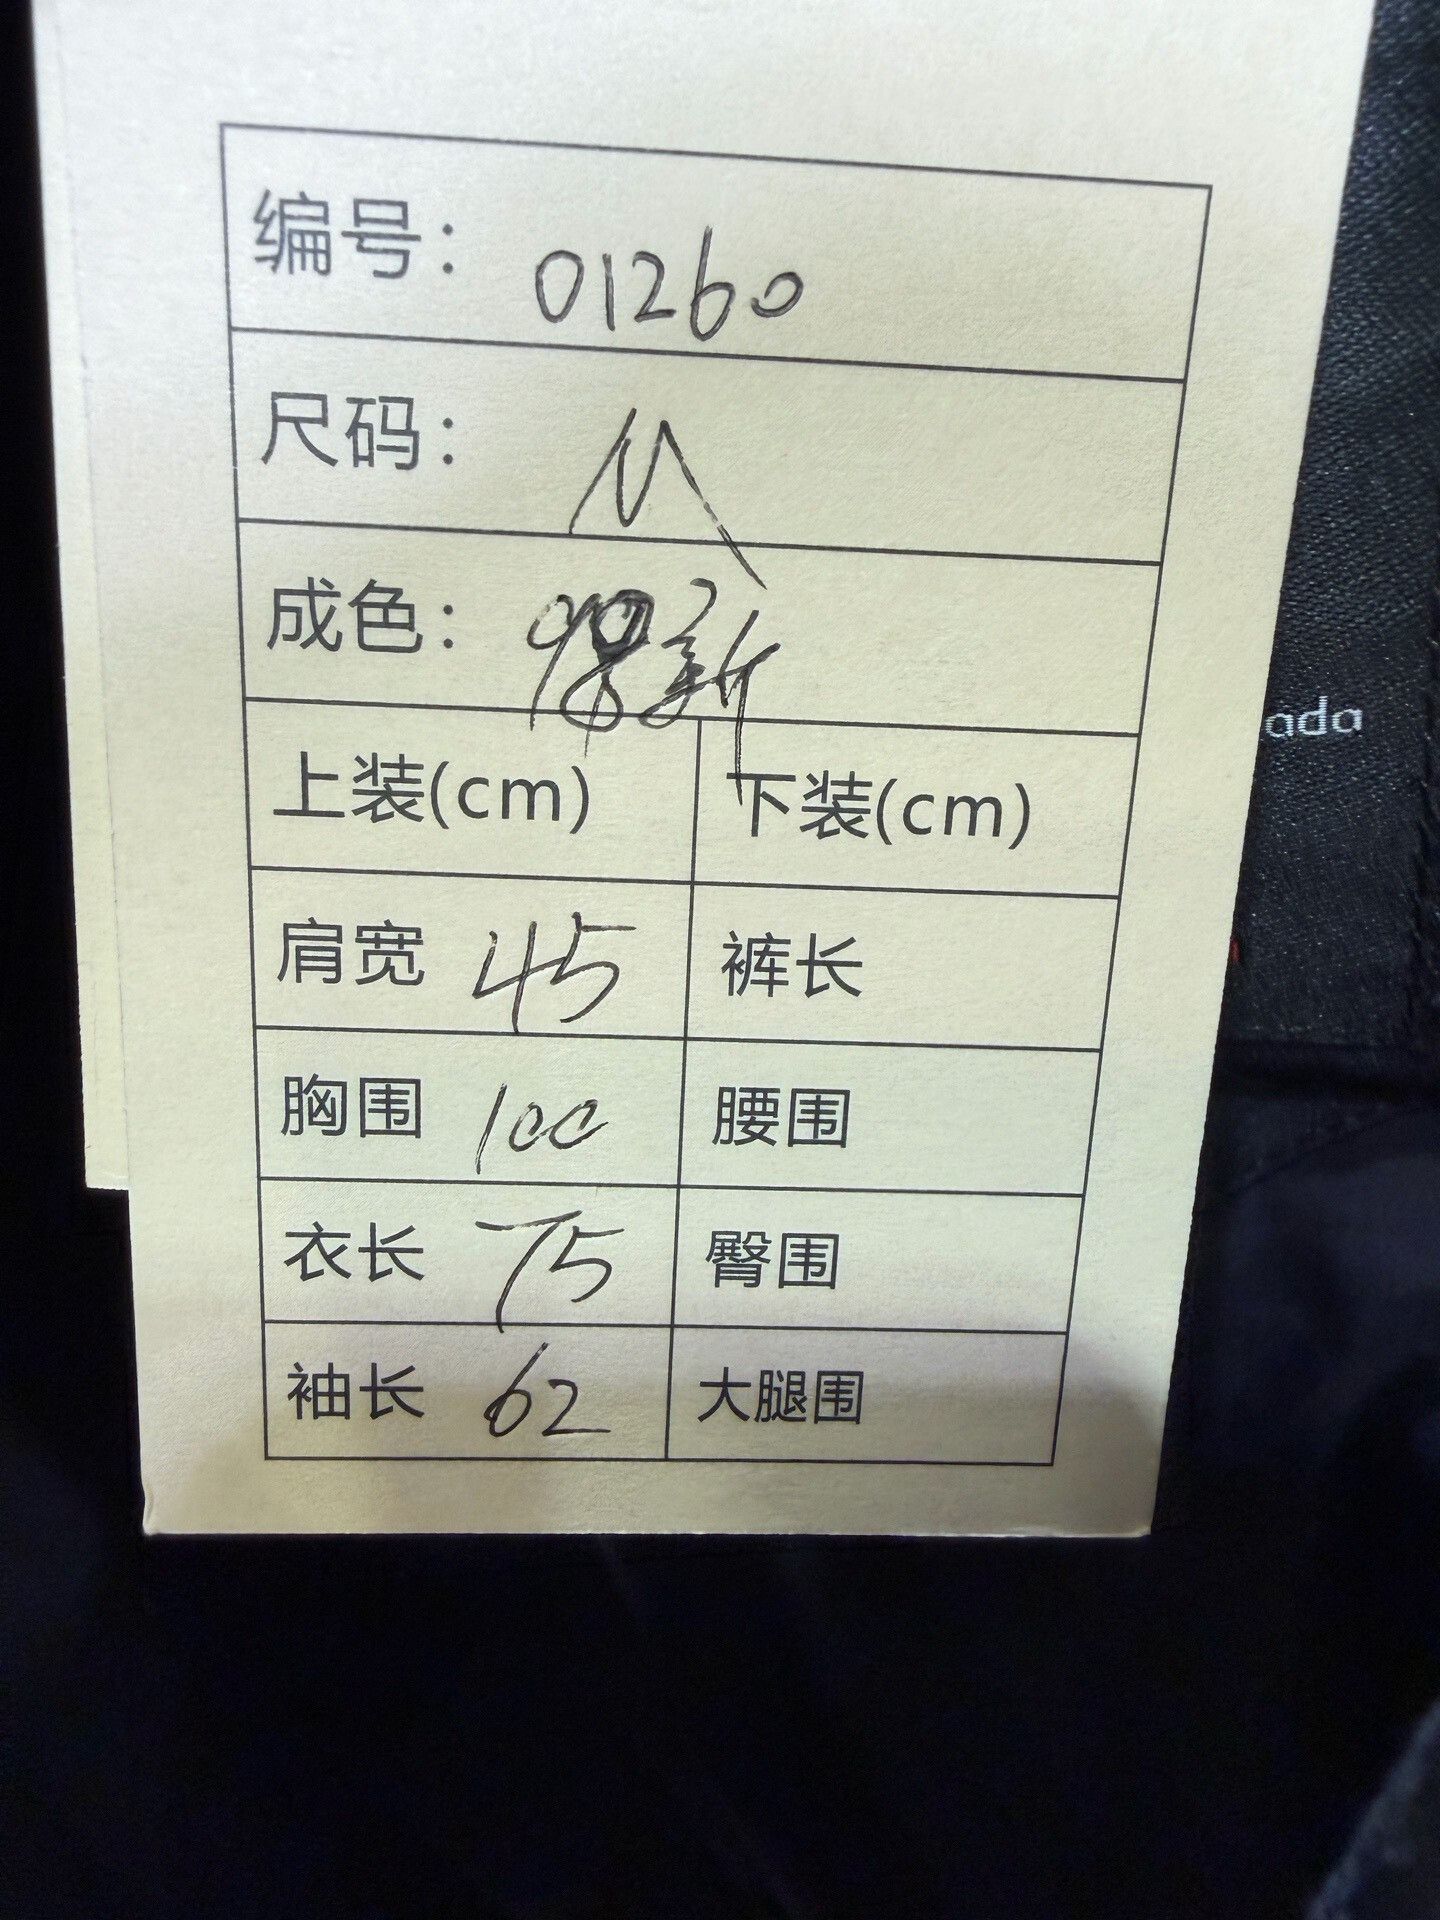 编号： 01260
尺码： M
成色： 新
上装(cm) 下装(cm)
肩宽 45 裤长
胸围 100 腰围
衣长 75 臀围
袖长 62 大腿围
ada